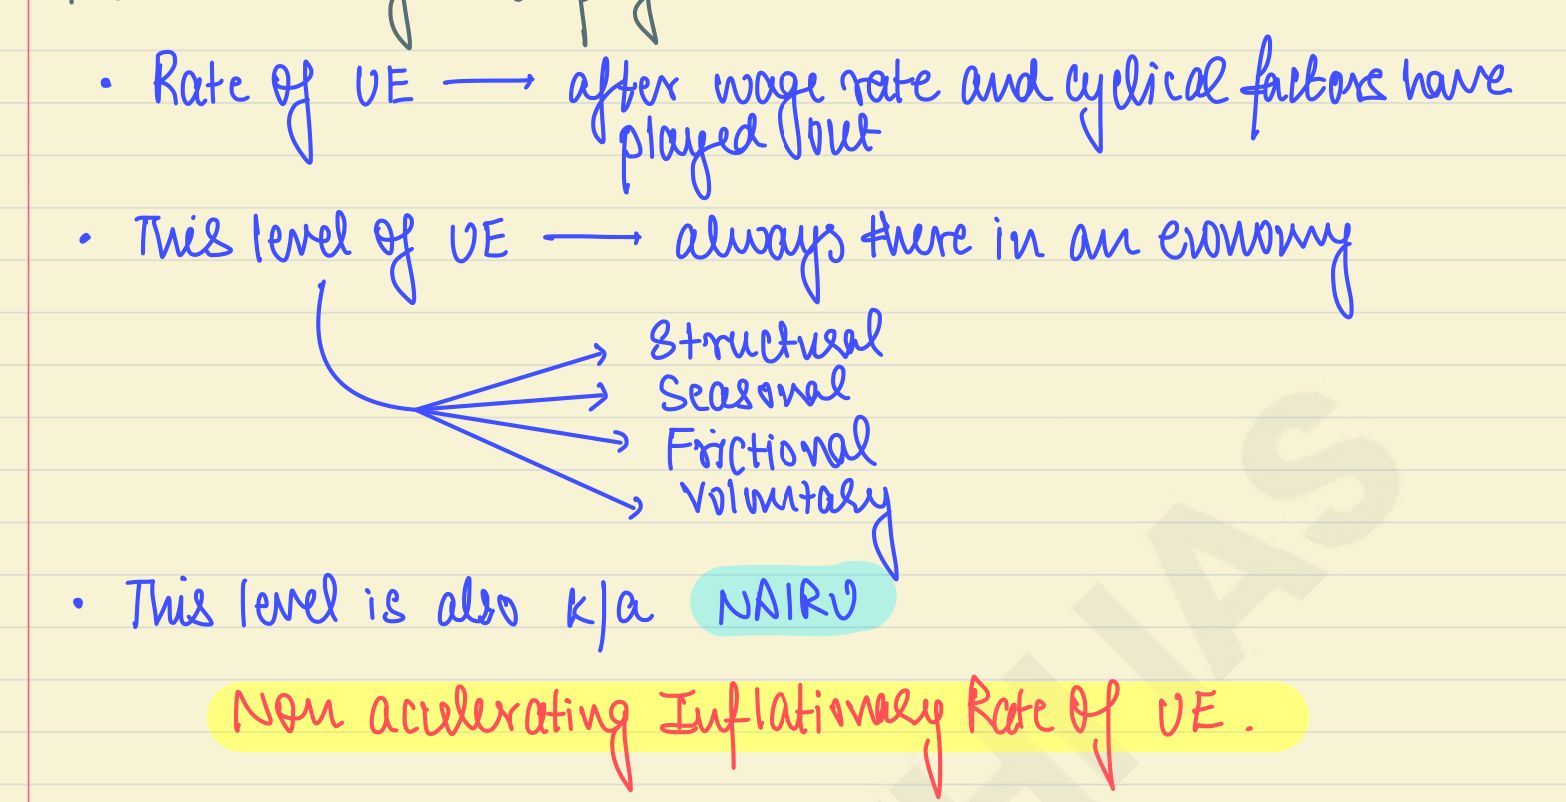 • Rate of UE → after wage rate and cyclical factors have
played out
• This level of UE → always there in an economy
Structural
Seasonal
Frictional
Voluntary
• This level is also k/a NAIRU
Non accelerating Inflationary Rate of UE.
HIAS